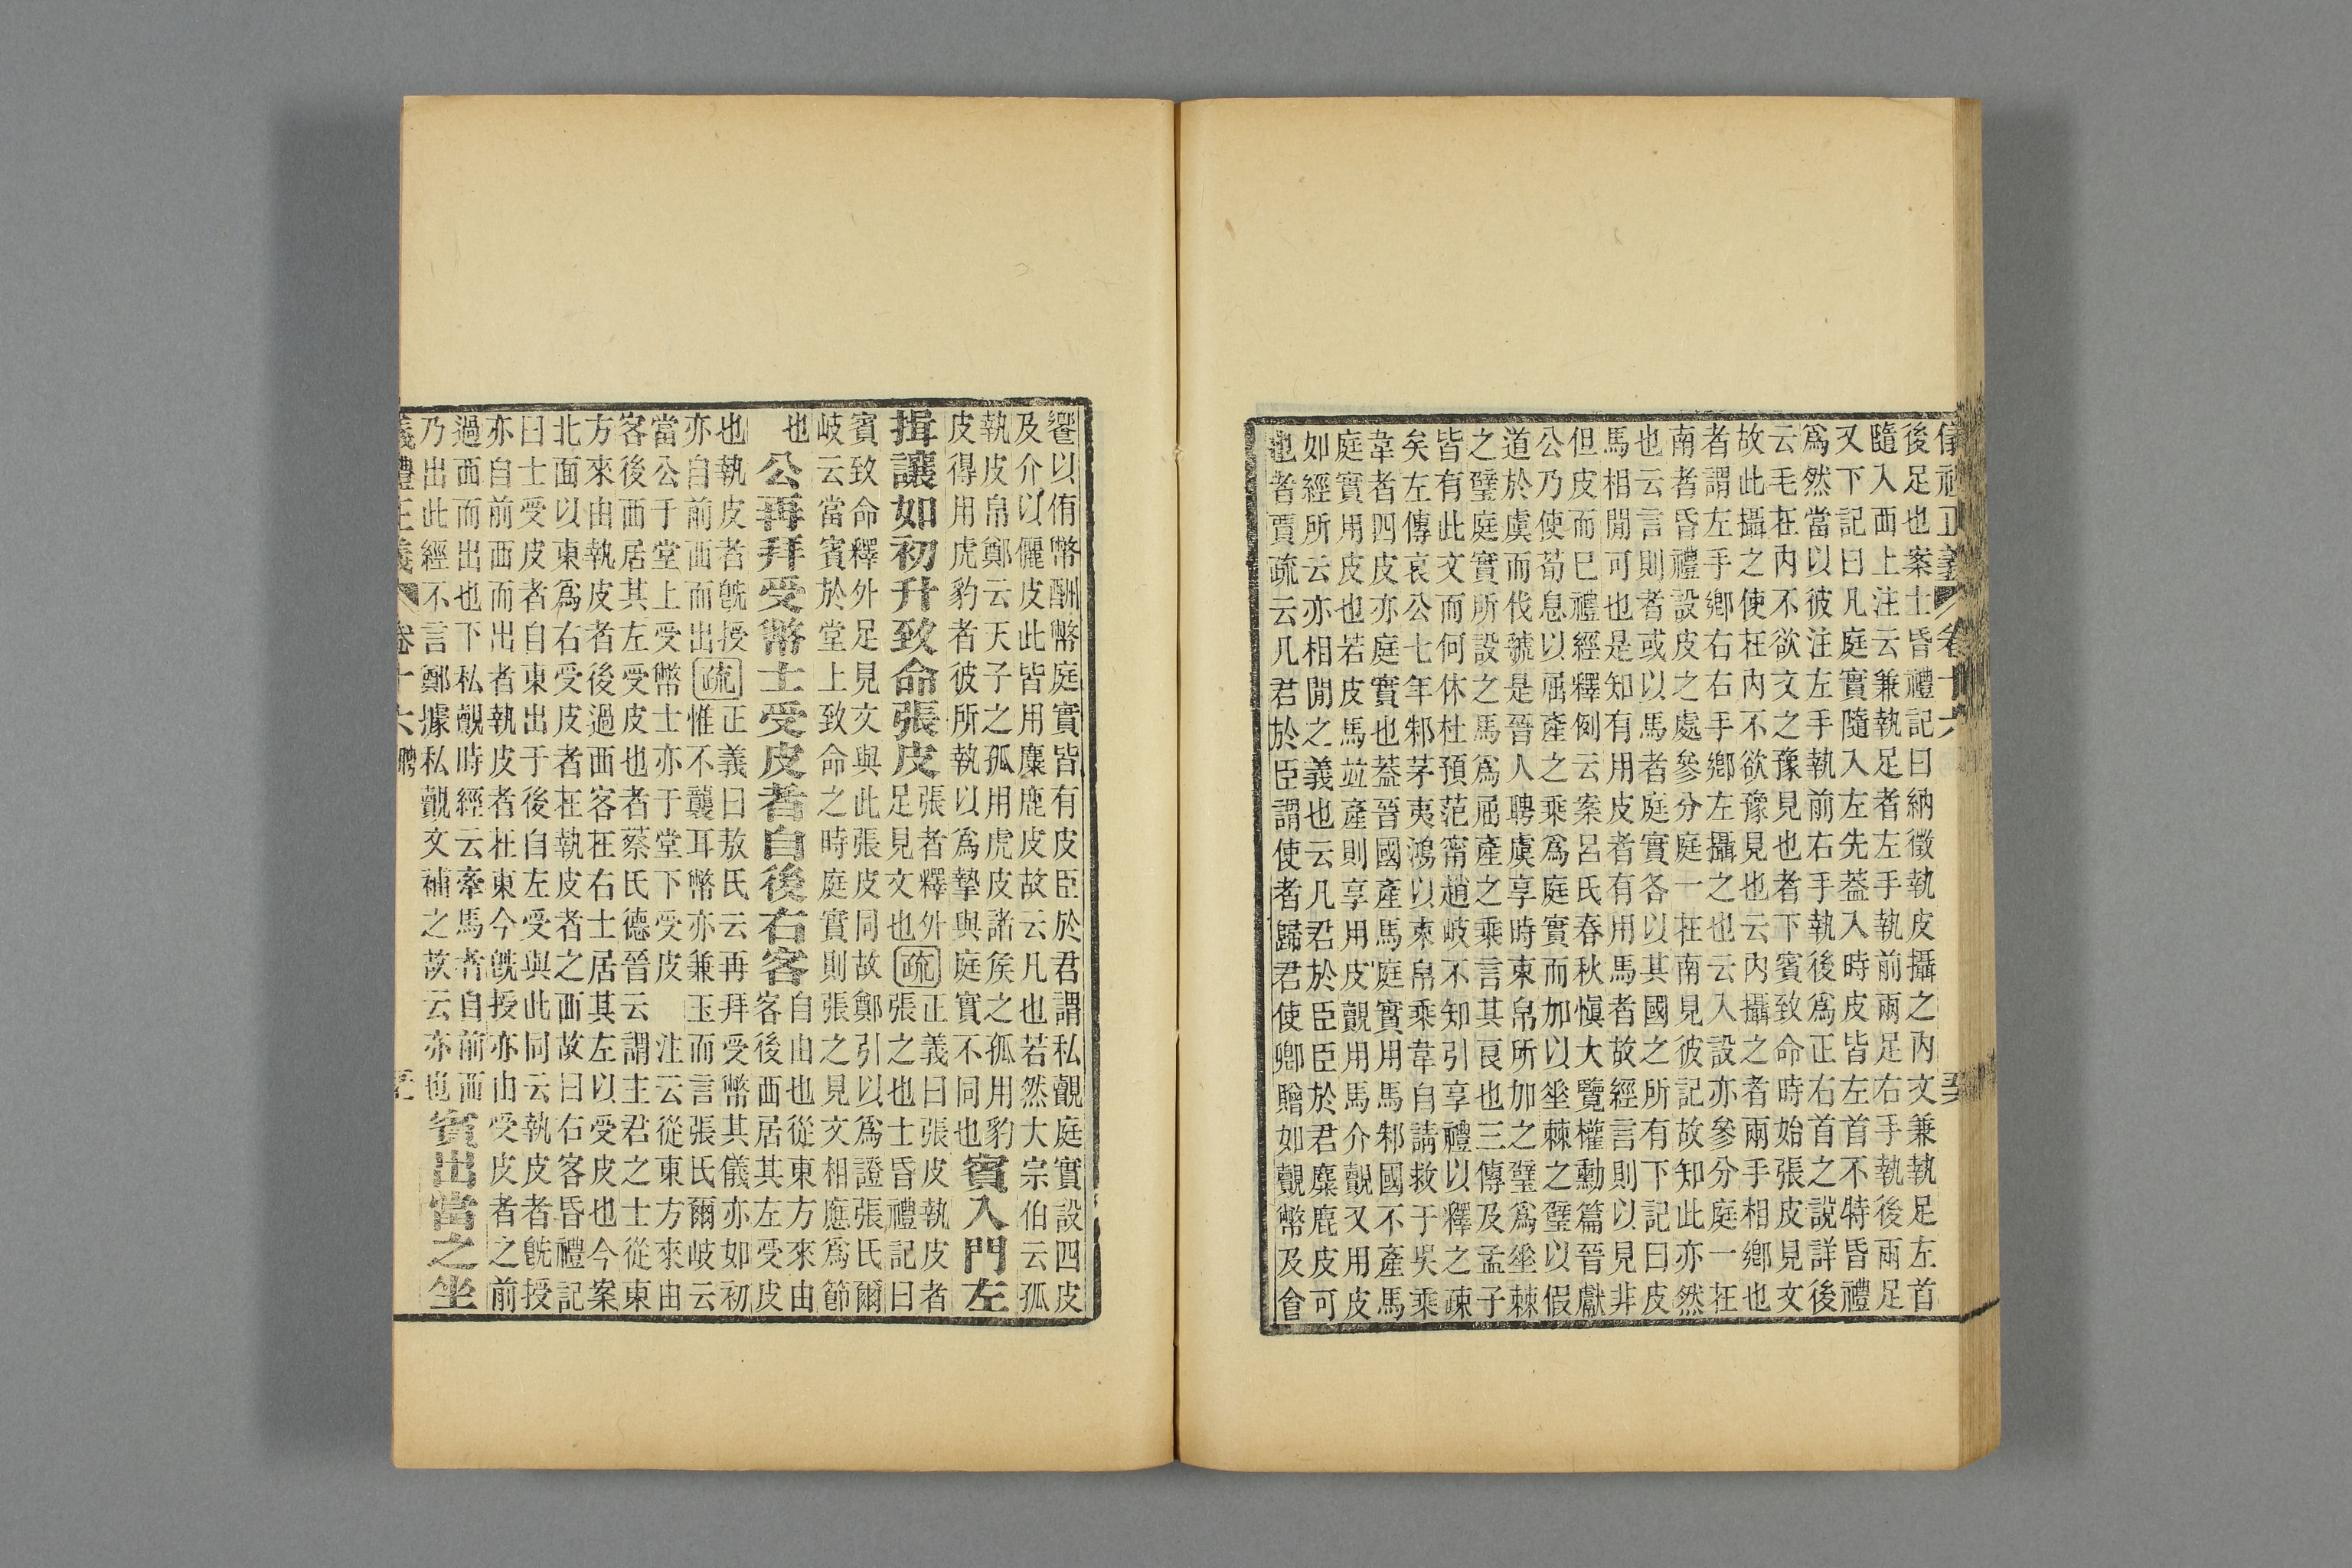 儀禮正義 卷十六
後足也案士昏禮記曰納徵執皮攝之內文兼執足左首
隨入西上注云兼執足者左手執前兩足右手執後兩足
又下記曰凡庭實隨入左先葢入時皮皆左首不特昏禮
爲然當以彼注左手執前右手執後爲正右首之說詳後
云毛在內不欲文之豫見也者下云賓致命時始張皮見文
故此攝之使在內不欲豫見也云內攝之者兩手相鄉也
者謂左手鄉右右手鄉左攝之也云入設亦參分庭一在
南者昏禮設皮之處參分庭一在南見彼記故知此亦然
也云言則者或以馬者庭實各以其國之所有下記曰皮
馬相閒可也是知有用皮者有用馬者故經言則以見非
但皮而已禮經釋例云案呂氏春秋愼大覽權勳篇晉獻
公乃使荀息以屈產之乘爲庭實而加以垂棘之璧以假
道於虞而伐虢是晉人聘虞享時束帛所加之璧爲垂棘
之璧庭實所設之馬爲屈產之乘言其良也三傳及孟子
皆有此文而何休杜預范甯趙岐不知引享禮以釋之疎
矣左傳哀公七年邾茅夷鴻以束帛乘韋自請救于吳乘
韋者四皮亦庭實也葢晉國產馬庭實用馬邾國不產馬
庭實用皮也若皮馬竝產則享用皮覿用馬介覿又用皮
如經所云亦相閒之義也云凡君於臣臣於君麋鹿皮可
也者賈疏云凡君於臣謂使者歸君使卿贈如覿幣及食
饗以侑幣酬幣庭實皆有皮臣於君謂私覿庭實設四皮
及介以儷皮此皆用麋鹿皮故云凡也若然大宗伯云孤
執皮帛鄭云天子之孤用虎皮諸侯之孤用豹
皮得用虎豹者彼所執以爲摯與庭實不同也
賓入門左
揖讓如初升致命張皮
張者釋外
足見文也
疏
正義曰張皮執皮者
張之也士昏禮記曰
賓致命釋外足見文與此張皮同故鄭引以爲證張氏爾
岐云當賓於堂上致命之時庭實則張之見文相應爲節
也
公再拜受幣士受皮者自後右客
自由也從東方來由
客後西居其左受皮
也執皮者旣授
亦自前西而出
疏
正義曰敖氏云再拜受幣其儀亦如初
惟不襲耳幣亦兼玉而言張氏爾岐云
當公于堂上受幣士亦于堂下受皮 注云從東方來由
客後西居其左受皮也者蔡氏德晉云謂主君之士從東
方來由執皮者後過西客在右士居其左以受皮也今案
北面以東爲右受皮者在執皮者之西故曰右客昏禮記
曰士受皮者自東出于後自左受與此同云執皮者旣授
亦自前西而出者執皮者在東今旣授亦由受皮者之前
過西而出也下私覿時經云牽馬者自前西
乃出此經不言鄭據私覿文補之故云亦也
賓出當之坐
儀禮正義 卷十六 聘